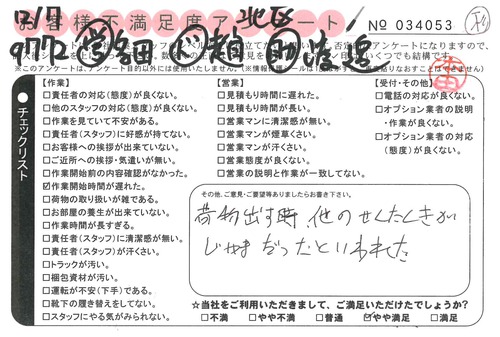 12/7
お客様不満足度アンケート
北区
No 034053
9772
【作業】
□責任者の対応(態度)が良くない。
□他のスタッフの対応(態度)が良くない。
□作業を見ていて不安がある。
□責任者(スタッフ)に好感が持てない。
□お客様への挨拶が出来ていない。
□ご近所への挨拶・気遣いが無い。
□作業開始前の内容確認がなかった。
☑作業開始時間が遅れた。
□荷物の取り扱いが雑である。
□お部屋の養生が出来ていない。
□作業時間が長すぎる。
□責任者(スタッフ)に清潔感が無い。
□責任者(スタッフ)が汗くさい。
□トラックが汚い。
□梱包資材が汚い。
□運転が不安(下手)である。
□靴下の履き替えをしてない。
□スタッフにやる気がみられない。
チェックリスト
【営業】
□見積もり時間に遅れた。
□見積もり時間が長い。
□営業マンに清潔感が無い。
□営業マンが煙草くさい。
□営業マンが汗くさい。
□営業態度が良くない。
□営業の説明と作業が一致してない。
【受付・その他】
□電話の対応が良くない。
□オプション業者の説明
・作業が良くない。
□オプション業者の対応
(態度)が良くない。
その他、ご意見・ご要望等ありましたらお書き下さい。
荷物出す時、他のせんたくときが
じゃまだったといわれた
☆当社をご利用いただきまして、ご満足いただけたでしょうか?
□不満 □やや不満 □普通 ☑やや満足 □満足